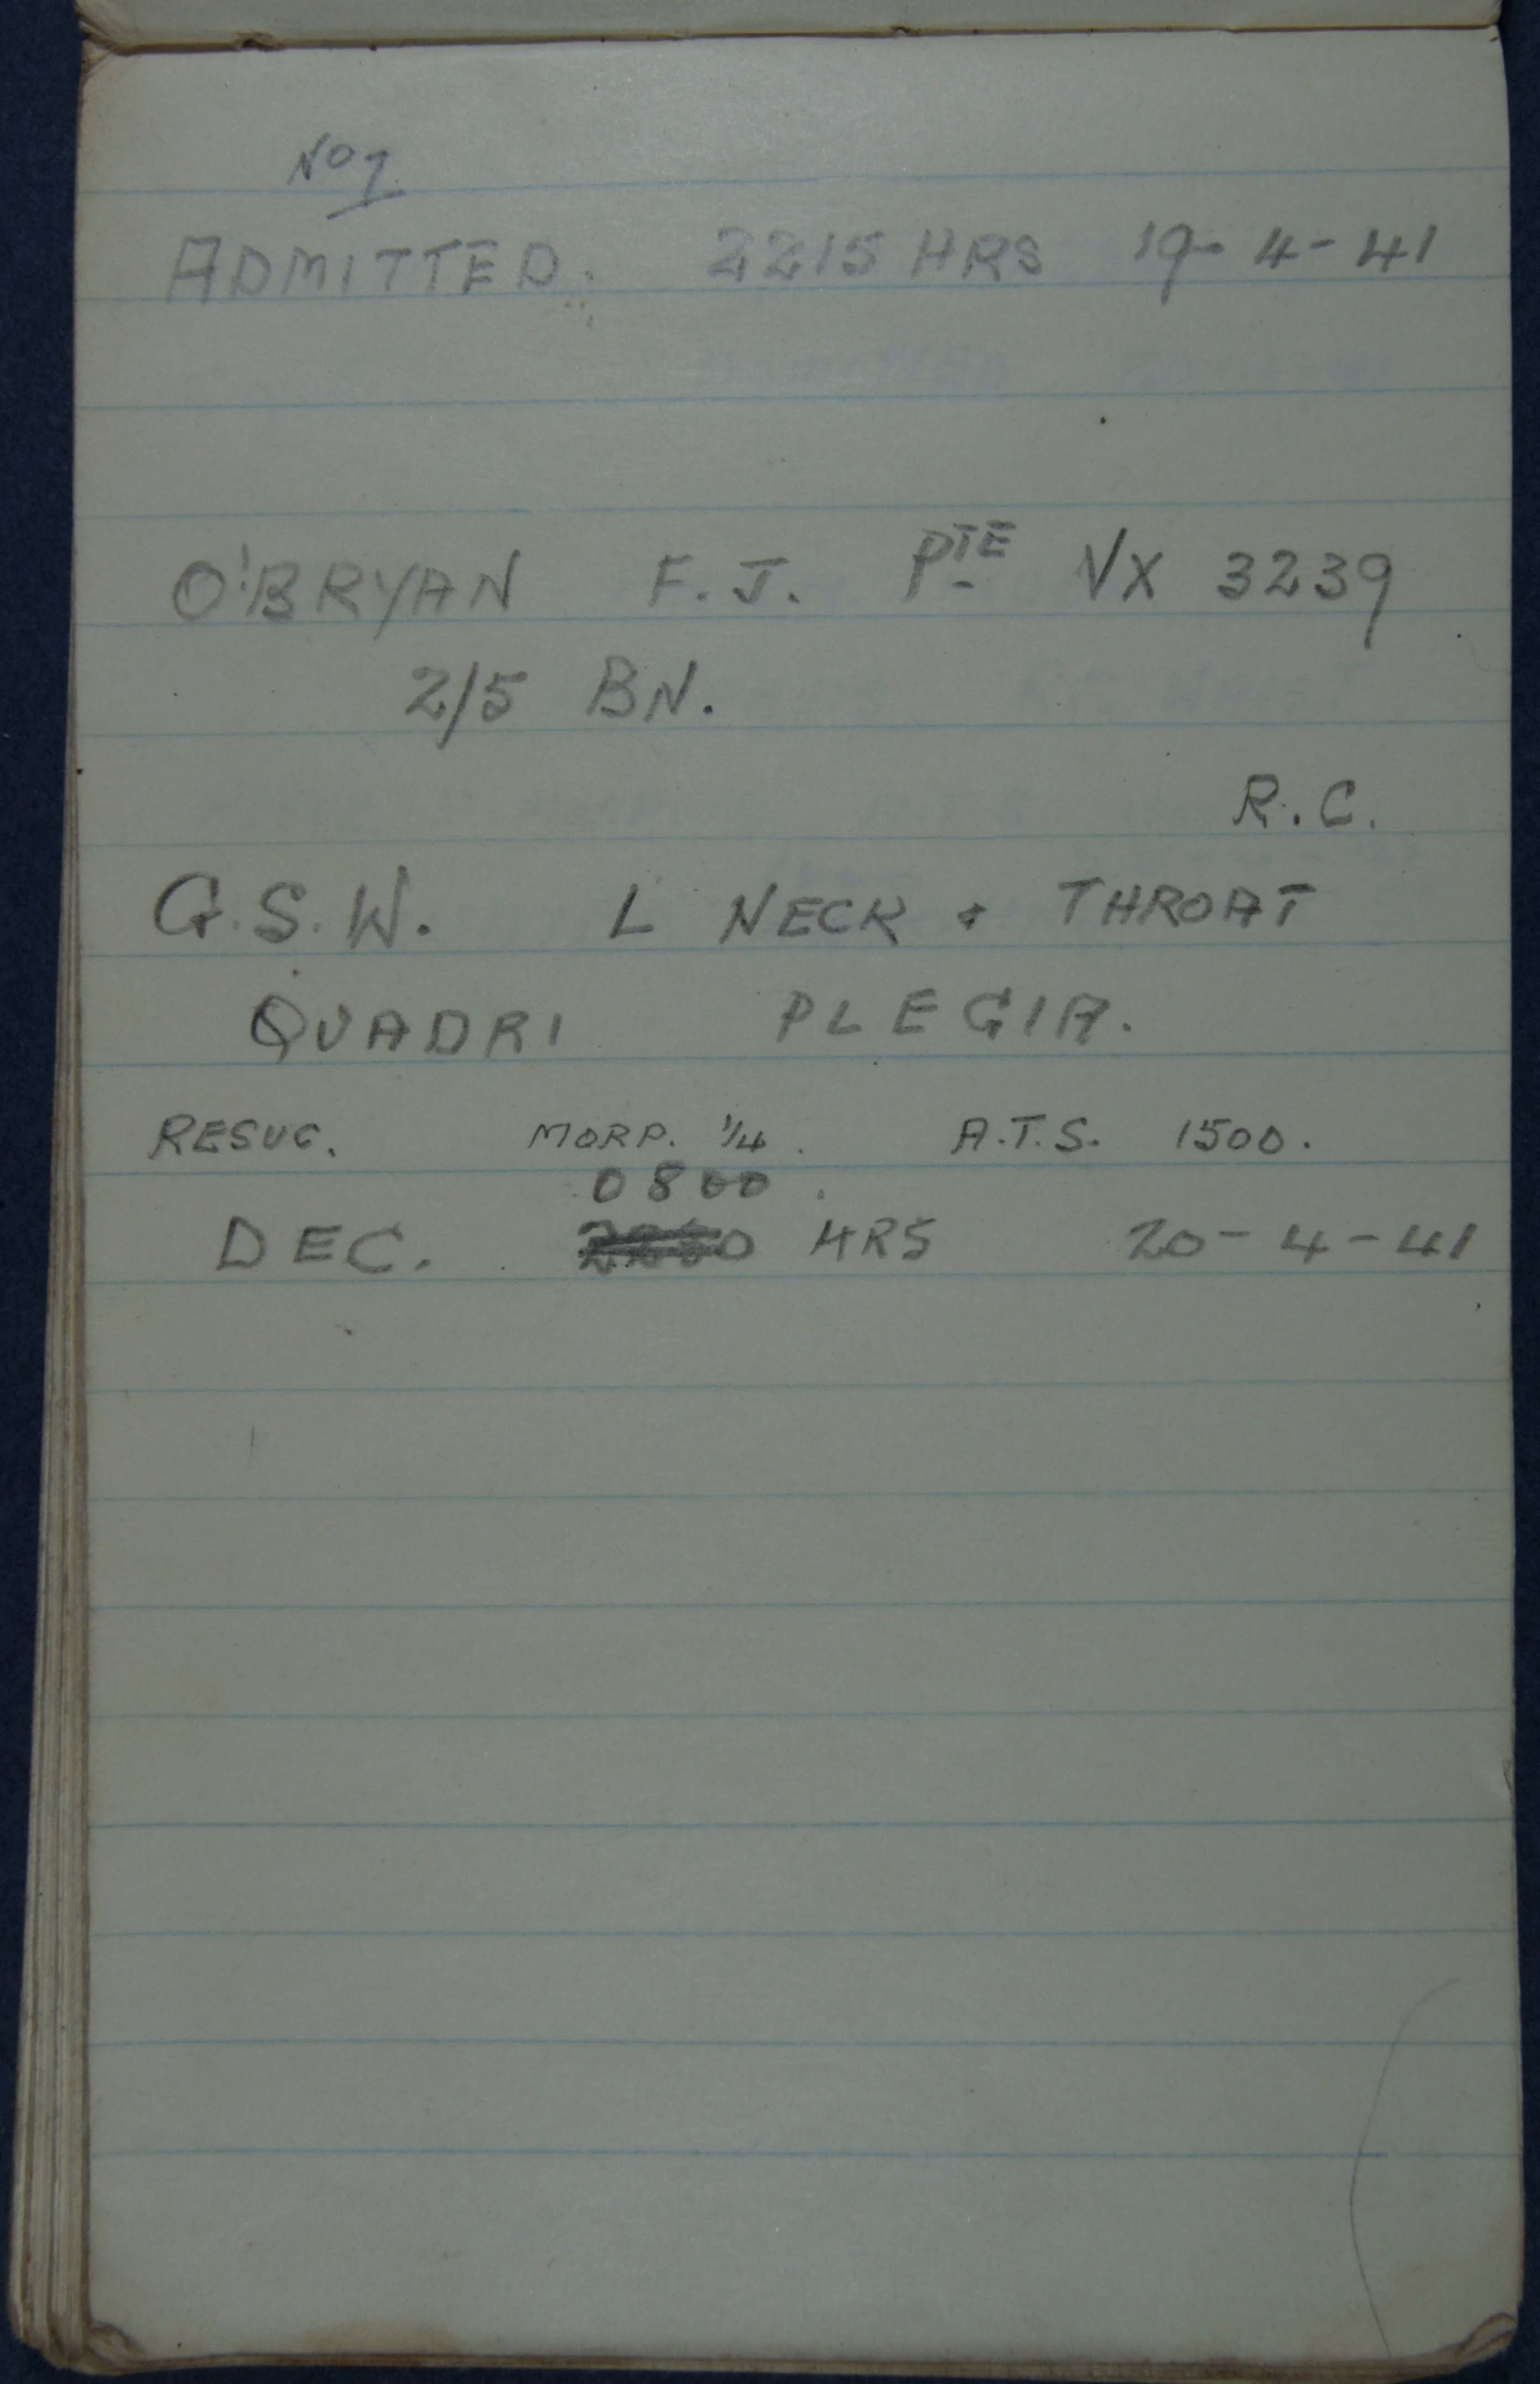 No 1
ADMITTED. 2215 HRS 19-4-41
O'BRYAN F.J. PTE VX 3239
2/5 BN.
R.C.
G.S.W. L NECK + THROAT
QUADRI PLEGIA.
RESUC. MORP. 1/4. A.T.S. 1500.
0800.
DEC. HRS 20-4-41